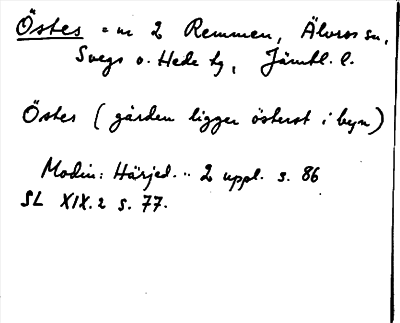 Östes = nr 2 Remmen, Älvros sn,
Svegs o. Hede tg, Jämtl. l.
Östes (gården ligger österst i byn)
Modin: Härjed... 2 uppl. s. 86
SL XIX.2 s. 77.